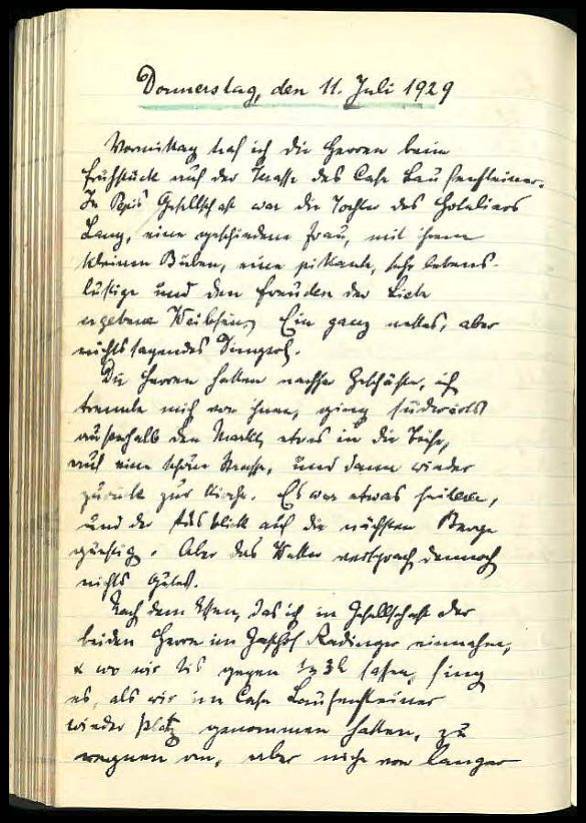 Donnerstag, den 11. Juli 1929
Vormittag traf ich die Herren beim
Frühstück auf der Terrasse des Café Laufensteiner.
In Pepis Gesellschaft war die Tochter des Hoteliers
Lang, eine geschiedene Frau, mit ihrem
kleinen Buben, eine pikante, sehr lebens-
lustige und den Freuden der Liebe
ergebene Weibchen. Ein ganz nettes, aber
nichtssagendes Dingerl.
Die Herren hatten Geschäfte, ich
trennte mich von ihnen, ging südwärts
ausserhalb den Markt, etwas in die Höhe,
auf eine schöne Strasse, und dann wieder
zurück zur Kirche. Es war etwas heiterer,
und der Ausblick auf die nächsten Berge
günstig. Aber das Wetter versprach dennoch
nichts Gutes.
Nach dem Essen, das ich in Gesellschaft der
beiden Herren im Gasthof Radinger einnahm,
& wo wir bis gegen ½ 3h sassen, fing
es, als wir im Café Laufensteiner
wieder Platz genommen hatten, zu
regnen an, aber nicht von langer